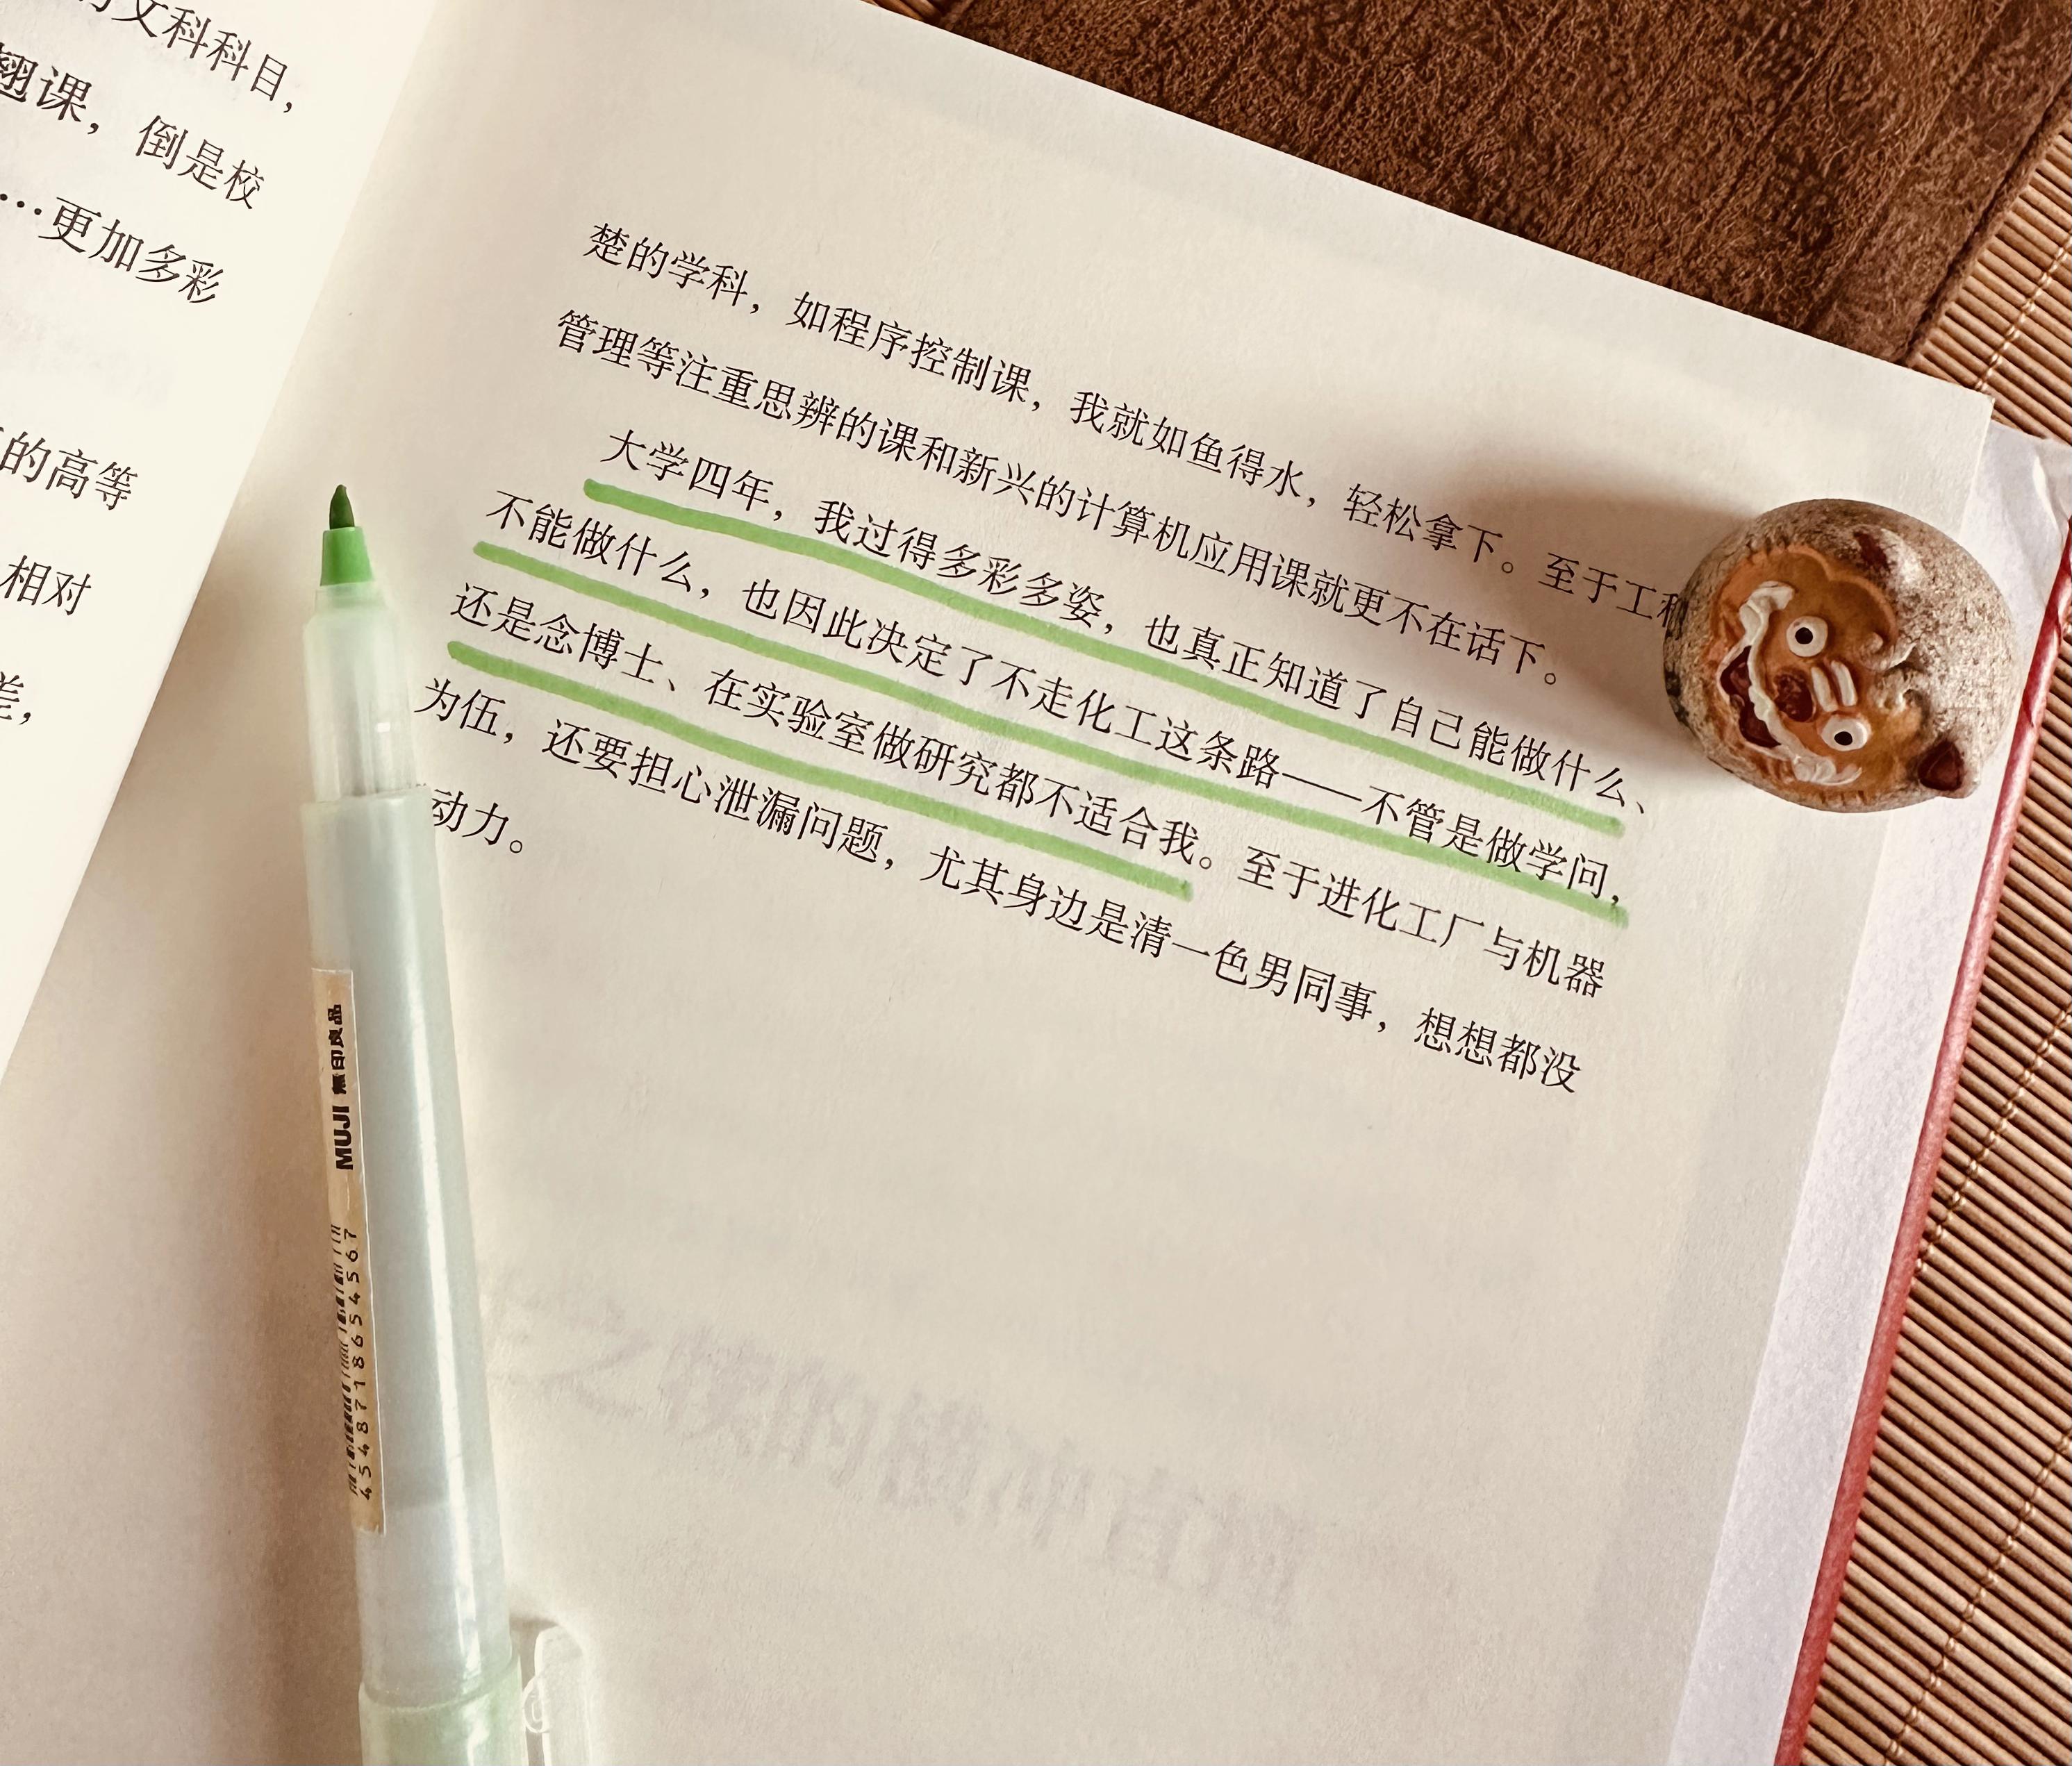 文科科目，
翘课，倒是校
…更加多彩
的高等
相对
差，
楚的学科，如程序控制课，我就如鱼得水，轻松拿下。至于工程
管理等注重思辨的课和新兴的计算机应用课就更不在话下。
大学四年，我过得多彩多姿，也真正知道了自己能做什么、
不能做什么，也因此决定了不走化工这条路——不管是做学问，
还是念博士、在实验室做研究都不适合我。至于进化工厂与机器
为伍，还要担心泄漏问题，尤其身边是清一色男同事，想想都没
动力。
MUJI 無印良品
4548718654567